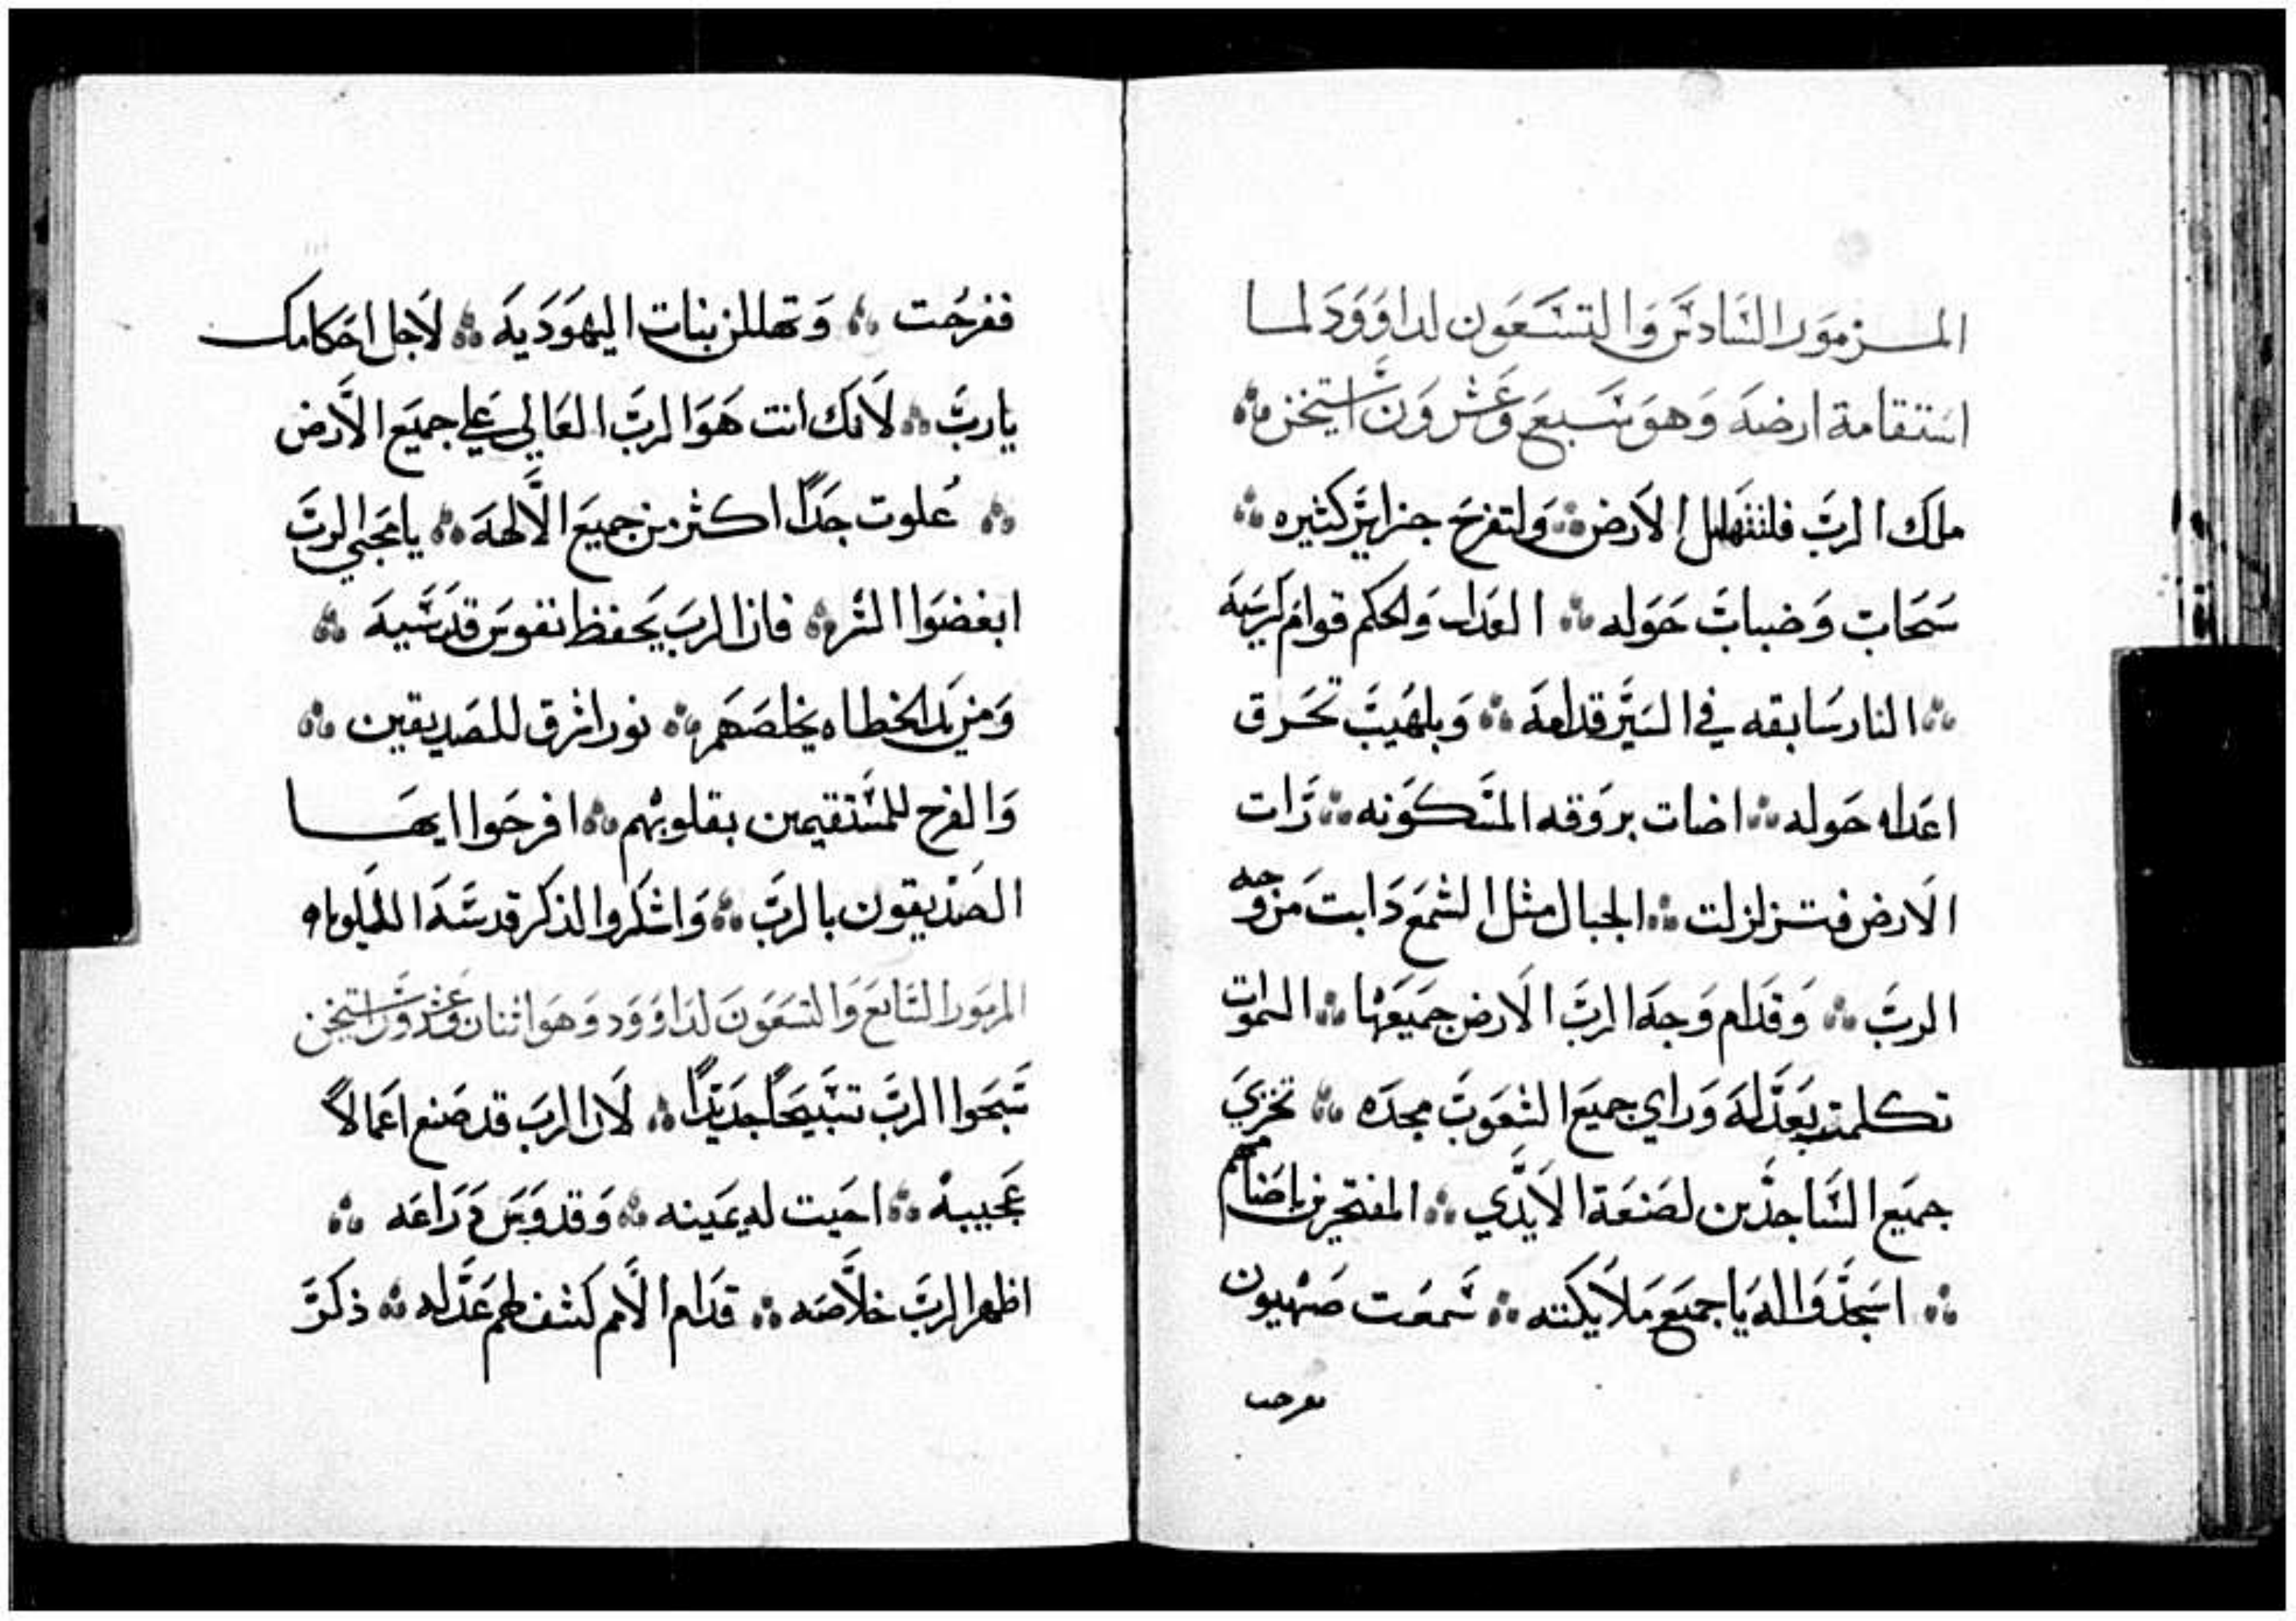 المزمور السادس والتسعون لداوود لما
استقامة ارضه وهو سبع وعشرون استيخن
ملك الرب فلتتهلل الارض ۞ ولتفرح جزاير كثيره ۞
سحاب وضباب حوله ۞ العدل والحكم قوام كرسيه
۞ النار سابقه في السير قدامه ۞ وبلهيب تحرق
اعداه حوله ۞ اضات بروقه المسكونه ۞ رات
الارض فتزلزلت ۞ الجبال مثل الشمع دابت من وجه
الرب ۞ وقدام وجه الرب الارض جميعها ۞ السموات
تكلمت بعدله وراي جميع الشعوب مجده ۞ تخزي
جميع الساجدين لصنعة الايدي ۞ المفتخرين باصنامهم
۞ اسجدوا له يا جميع ملايكته ۞ سمعت صهيون
ففرحت
ففرحت ۞ وتهللن بنات اليهوديه ۞ لاجل احكامك
يارب ۞ لانك انت هو الرب العالي علي جميع الارض
۞ علوت جدا اكثر من جميع الالهه ۞ يا محبي الرب
ابغضوا الشر ۞ فان الرب يحفظ نفوس قديسيه ۞
ومن يد الخطاه يخلصهم ۞ نور اشرق للصديقين ۞
والفرح للمستقيمين بقلوبهم ۞ افرحوا ايها
الصديقون بالرب ۞ واشكروا لذكر قدسه الليلوياه
المزمور السابع والتسعون لداوود وهو اثنان وعشرون استيخن
سبحوا الرب تسبيحا جديدا ۞ لان الرب قد صنع اعمالا
عجيبه ۞ احيت له يمينه ۞ وقدوس دراعه ۞
اظهر الرب خلاصه ۞ قدام الامم كشف لهم عدله ۞ ذكر